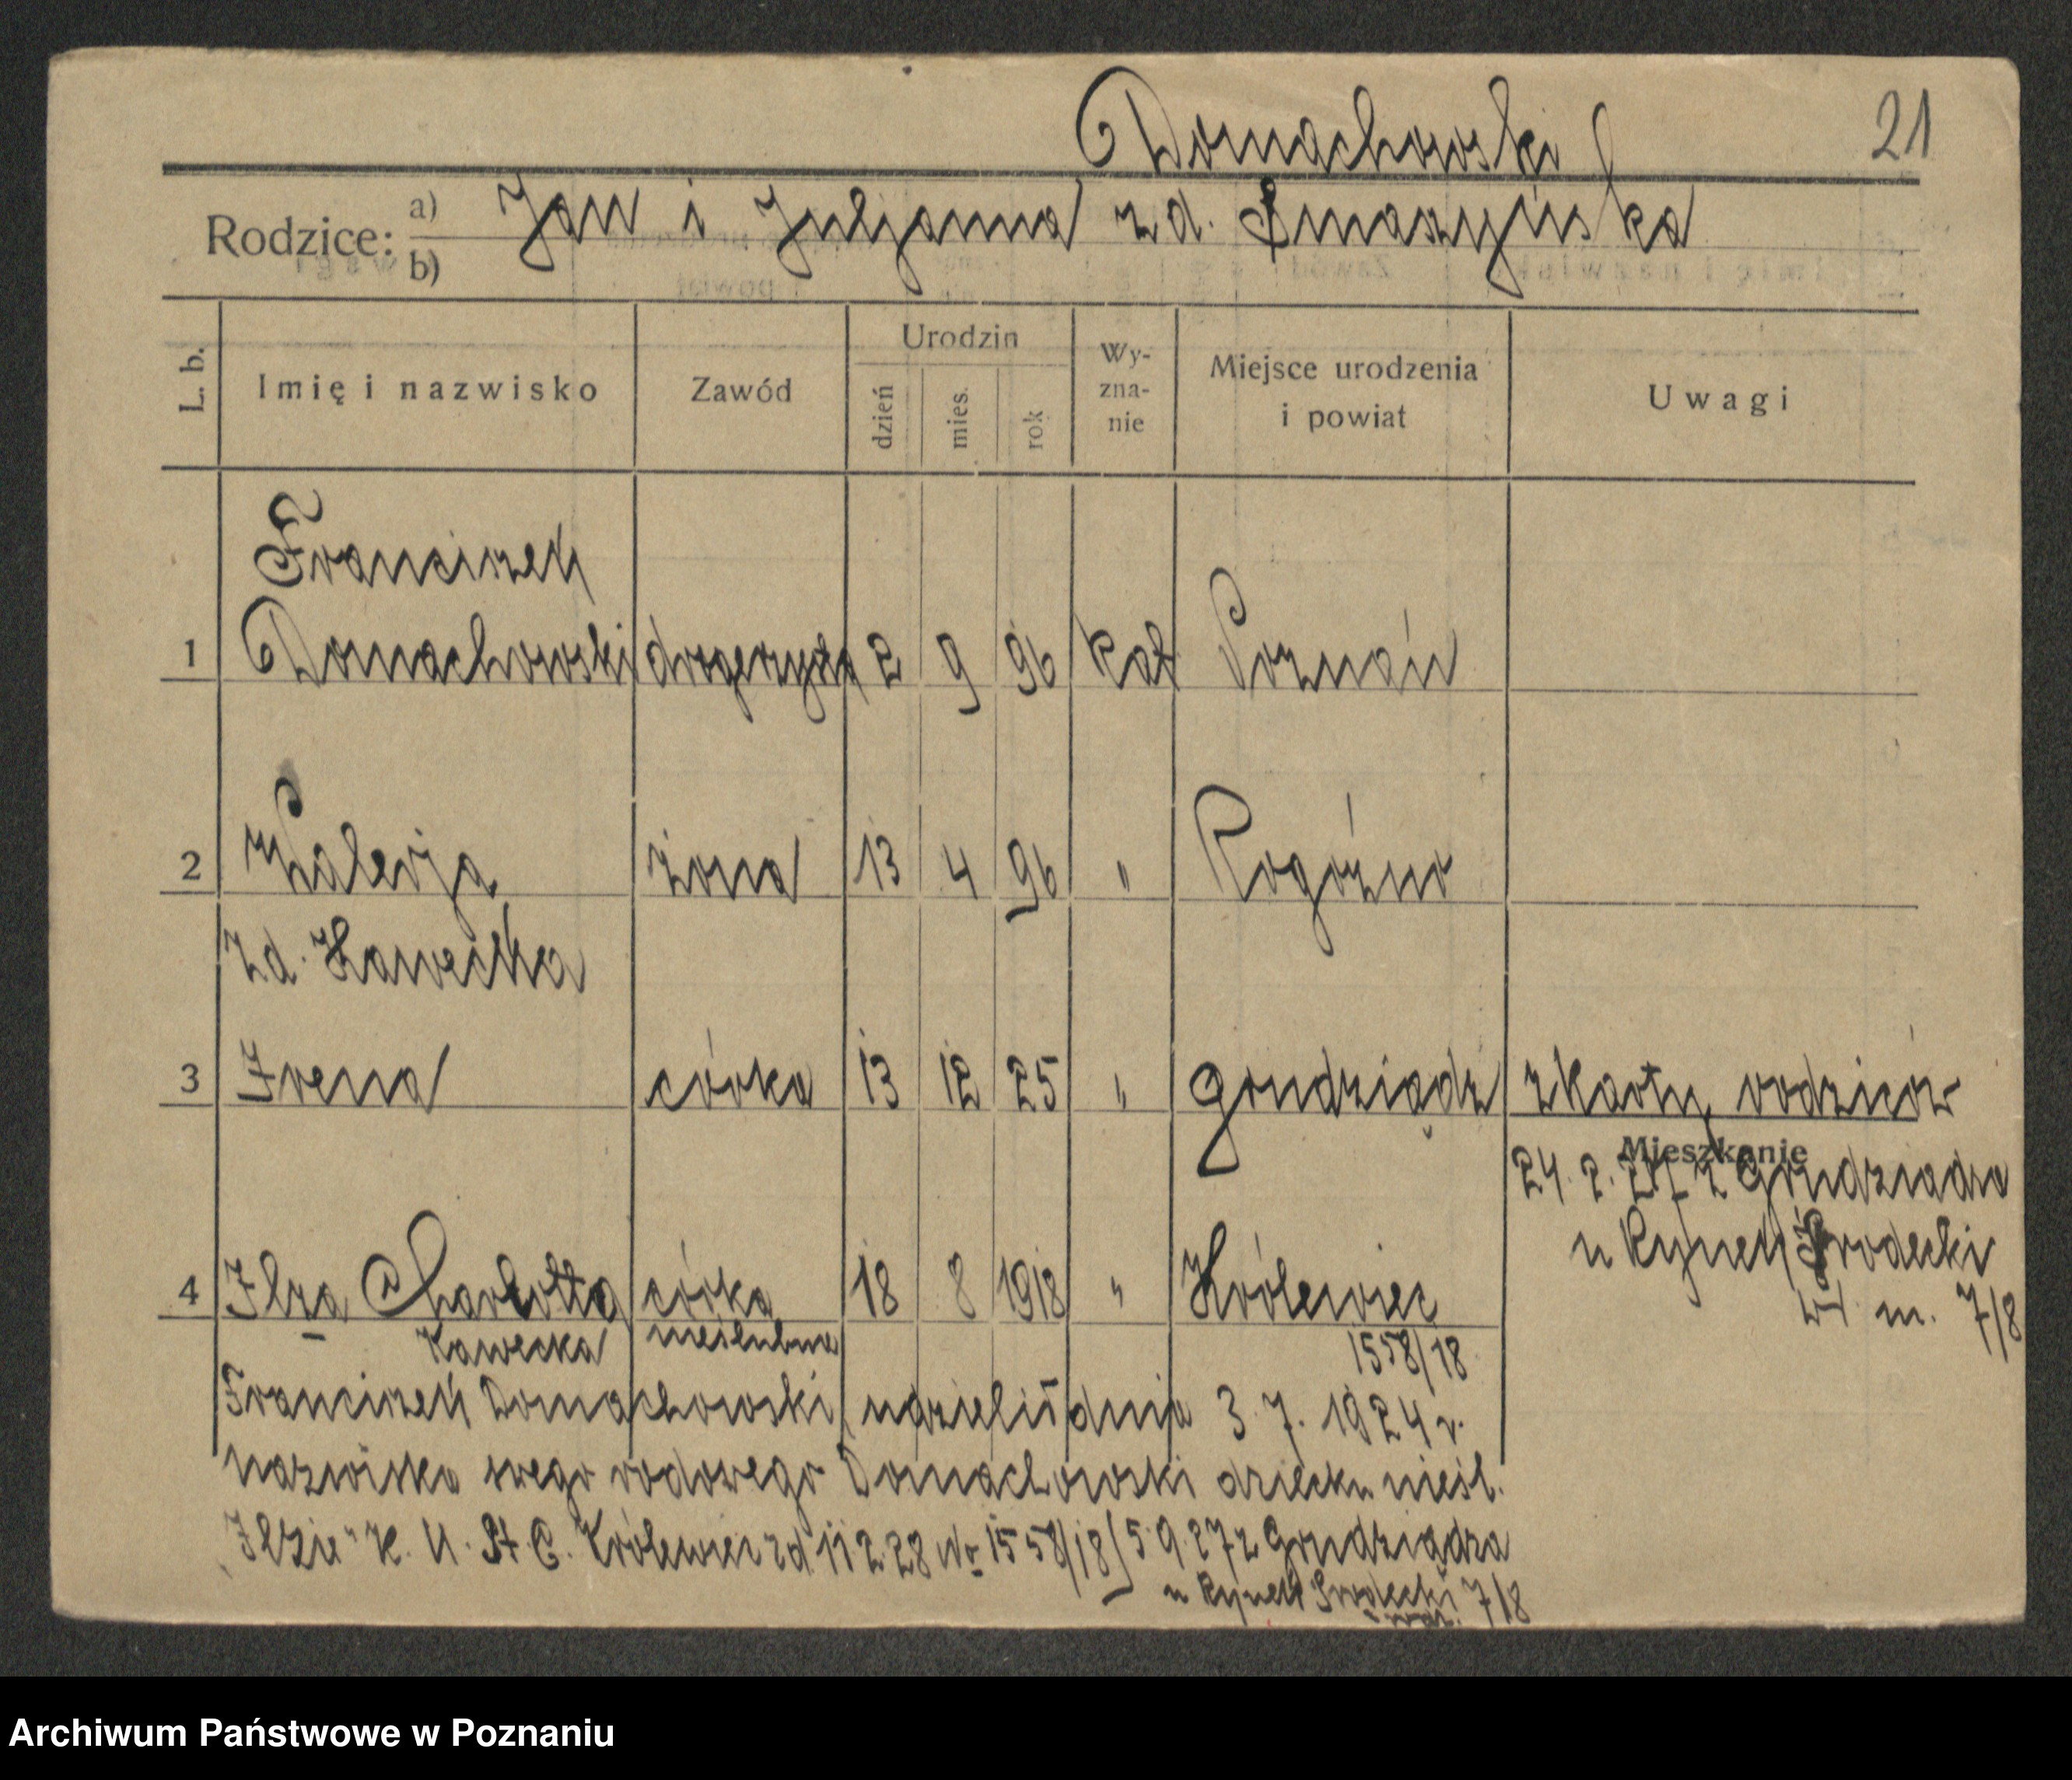 Domachowski
21
Rodzice: a) Jan i Juljanna z d. Smaszyńska
b)
L. b. Imię i nazwisko Zawód Urodzin dzień mies. rok Wy-zna-nie Miejsce urodzenia i powiat Uwagi
Franciszek
1 Domachowski drogerzysta 2 9 96 kat Poznań
2 Walerja żona 13 4 96 " Rogóźno
z d. Kawecka
3 Irena córka 13 12 25 " Grudziądz z karty rodziców
Mieszkanie
24. 2. 27 z Grudziądza
n Rynek Śródecki
4 Ilza Charlotta córka 18 8 1918 " Królewiec
m. 7/8
Kawecka nieślubna 1558/18
Franciszek Domachowski udzielił dnia 3. 7. 1924 r.
nazwiska swego rodowego Domachowski dziecku nieśl.
"Ilzie" K. U. St. C. Królewiec z d 11 2 28 Nr 1558/18/ 5. 9. 27 z Grudziądza
n Rynek Śródecki 7/8
Archiwum Państwowe w Poznaniu